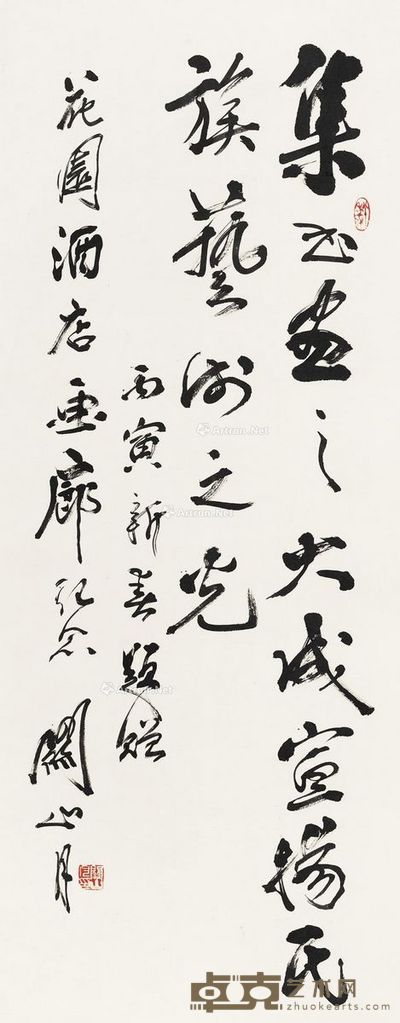 集书画之大成宣揚民
族藝術之光
丙寅新春題贈
花園酒店畫廊纪念
關山月
Artron.Net
Artron.Net
Artron.Net
卓克艺术网
zhuokearts.com